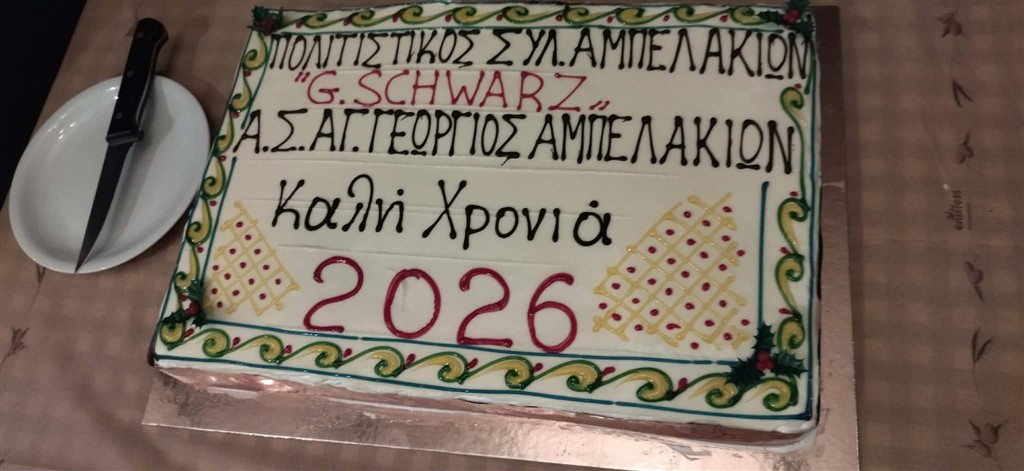 ΠΟΛΙΤΙΣΤΙΚΟΣ ΣΥΛ. ΑΜΠΕΛΑΚΙΩΝ
"G. SCHWARZ„
Α.Σ. ΑΓ. ΓΕΩΡΓΙΟΣ ΑΜΠΕΛΑΚΙΩΝ
Καλή Χρονιά
2026